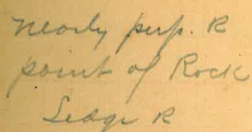 nearly perp. R
point of Rock
Ledge R